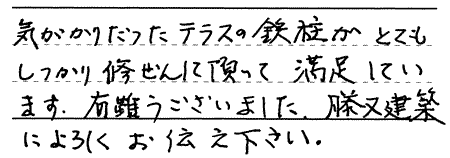 気がかりだった テラスの 鉄柱が とても
しっかり 修ぜんして頂って 満足してい
ます. 有難うございました. 勝又建築
によろしく お伝え下さい。